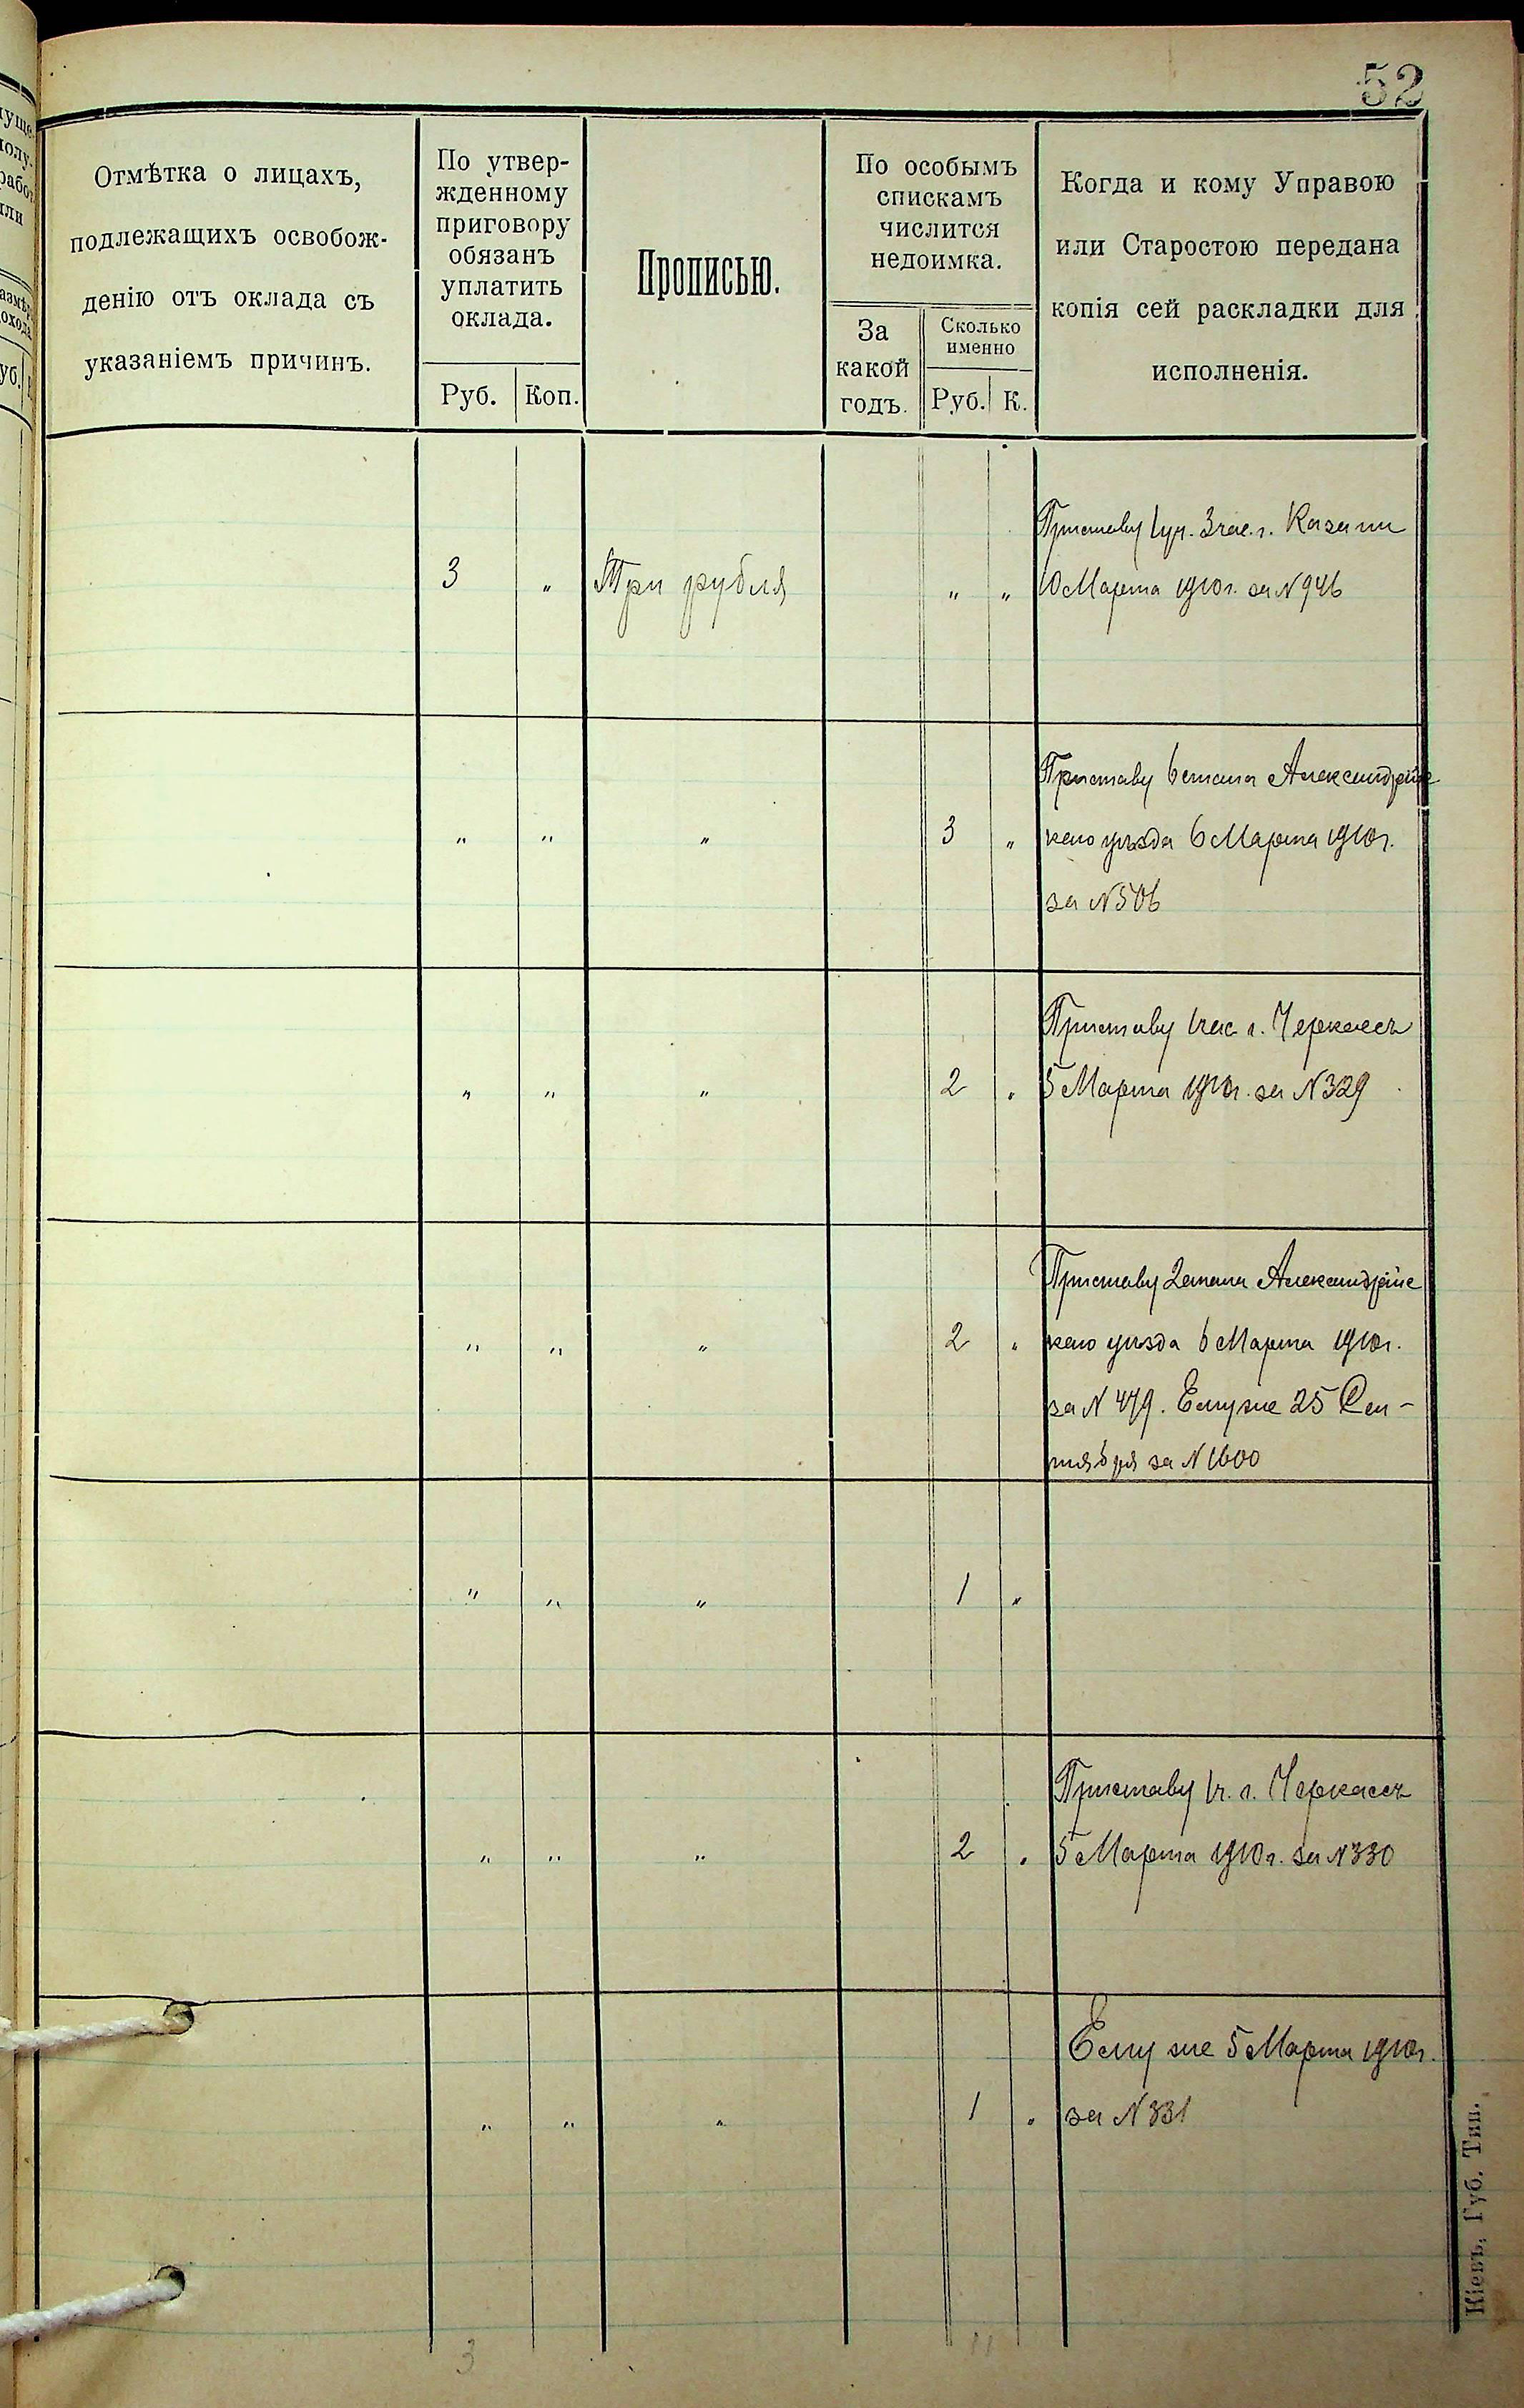 52
Отмѣтка о лицахъ,
подлежащихъ освобож-
денію отъ оклада съ
указаніемъ причинъ.
По утвер-
жденному
приговору
обязанъ
уплатить
оклада.
Руб. Коп.
Прописью.
По особымъ
спискамъ
числится
недоимка.
За
какой
годъ.
Сколько
именно
Руб. К.
Когда и кому Управою
или Старостою передана
копія сей раскладки для
исполненія.
Приставу 1 уч. 3 час. г. Казани
3 " Три рубля " " 10 Марта 1910 г. за N 946
Приставу 6 стана Александрійс
" " " 3 " каго уѣзда 6 Марта 1910 г.
за N 506
Приставу 1 час г. Черкассъ
" " " 2 " 5 Марта 1910 г. за N 329
Приставу 2 стана Александрійс
" " " 2 " каго уѣзда 6 Марта 1910 г.
за N 479. Ему же 25 Сен-
тября за N 1600
" " " 1 "
Приставу 1 ч. г. Черкассъ
" " " 2 " 5 Марта 1910 г. за N 330
Ему же 5 Марта 1910 г.
" " " 1 " за N 331
3 11
Кіевъ, Губ. Тип.